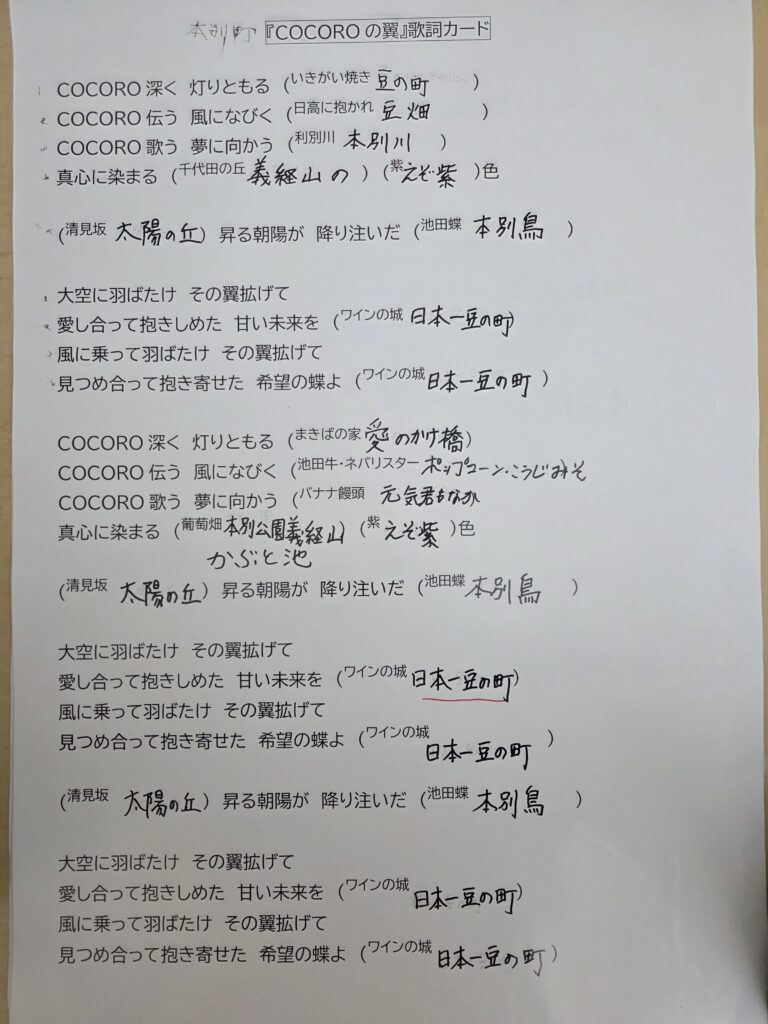 本別町 『COCOROの翼』歌詞カード
COCORO 深く 灯りともる (いきがい焼き 豆の町 )
COCORO 伝う 風になびく (日高に抱かれ 豆畑 )
COCORO 歌う 夢に向かう (利別川 本別川 )
真心に染まる (千代田の丘 義経山の ) (紫 えぞ紫 )色
(清見坂 太陽の丘) 昇る朝陽が 降り注いだ (池田蝶 本別鳥 )
大空に羽ばたけ その翼拡げて
愛し合って抱きしめた 甘い未来を (ワインの城 日本一豆の町)
風に乗って羽ばたけ その翼拡げて
見つめ合って抱き寄せた 希望の蝶よ (ワインの城 日本一豆の町 )
COCORO 深く 灯りともる (まきばの家 愛のかけ橋)
COCORO 伝う 風になびく (池田牛・ネバリスター ポップコーン・こうじみそ
COCORO 歌う 夢に向かう (バナナ饅頭 元気君もなか
真心に染まる (葡萄畑 本別公園義経山) (紫 えぞ紫 )色
かぶと池
(清見坂 太陽の丘) 昇る朝陽が 降り注いだ (池田蝶 本別鳥 )
大空に羽ばたけ その翼拡げて
愛し合って抱きしめた 甘い未来を (ワインの城 日本一豆の町)
風に乗って羽ばたけ その翼拡げて
見つめ合って抱き寄せた 希望の蝶よ (ワインの城 日本一豆の町 )
(清見坂 太陽の丘) 昇る朝陽が 降り注いだ (池田蝶 本別鳥 )
大空に羽ばたけ その翼拡げて
愛し合って抱きしめた 甘い未来を (ワインの城 日本一豆の町)
風に乗って羽ばたけ その翼拡げて
見つめ合って抱き寄せた 希望の蝶よ (ワインの城 日本一豆の町 )